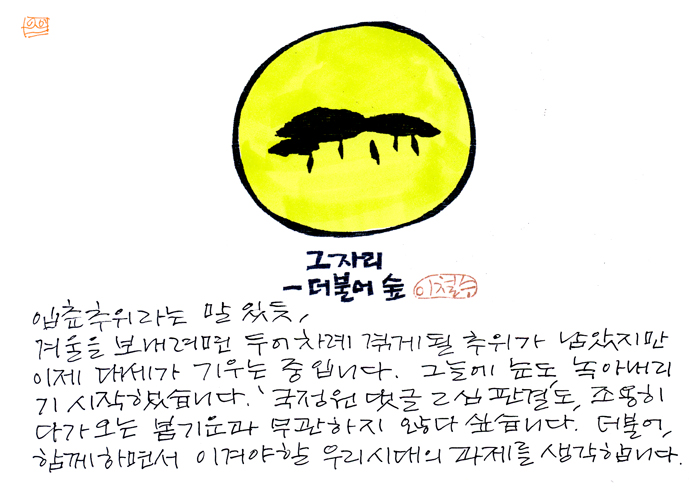 그 자리
- 더불어 숲 이철수
입춘추위라는 말 있듯,
겨울을 보내려면 두어차례 겪게 될 추위가 남았지만
이제 대세가 기우는 중입니다. 그늘에 눈도, 녹아내리
기 시작했습니다. '국정원 댓글 2심 판결'도, 조용히
다가오는 봄기운과 무관하지 않다 싶습니다. 더불어,
함께하면서 이겨야할 우리시대의 과제를 생각합니다.